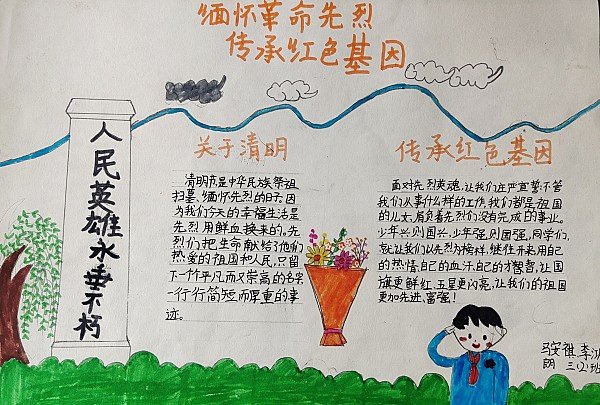 缅怀革命先烈
传承红色基因
人民英雄永垂不朽
关于清明
清明节是中华民族祭祖
扫墓、缅怀先烈的日子，因
为我们今天的幸福生活是
先烈用鲜血换来的。先
烈们把生命献给了他们
热爱的祖国和人民，只留
下一个平凡而又崇高的名字
一行行简短而厚重的事
迹。
传承红色基因
面对先烈英魂，让我们庄严宣誓：不管
我们从事什么样的工作，我们都是祖国
的儿女，肩负着先烈们没有完成的事业。
少年兴则国兴，少年强，则国强，同学们，
让我们以先烈为榜样，继往开来用自己
的热情，自己的血汗，自己的才智，让国
旗更鲜红，五星更闪亮，让我们的祖国
更加先进、富强！
李
朗 三(2)班